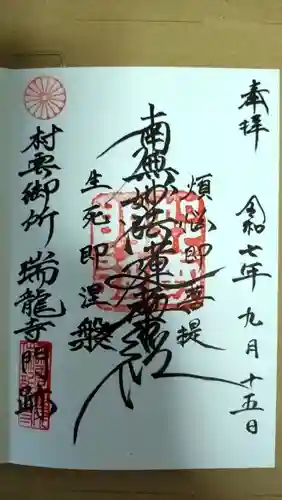 奉拝
令和七年九月十五日
煩悩即菩提
南無妙法蓮華経
生死即涅槃
村雲御所 瑞龍寺
門跡